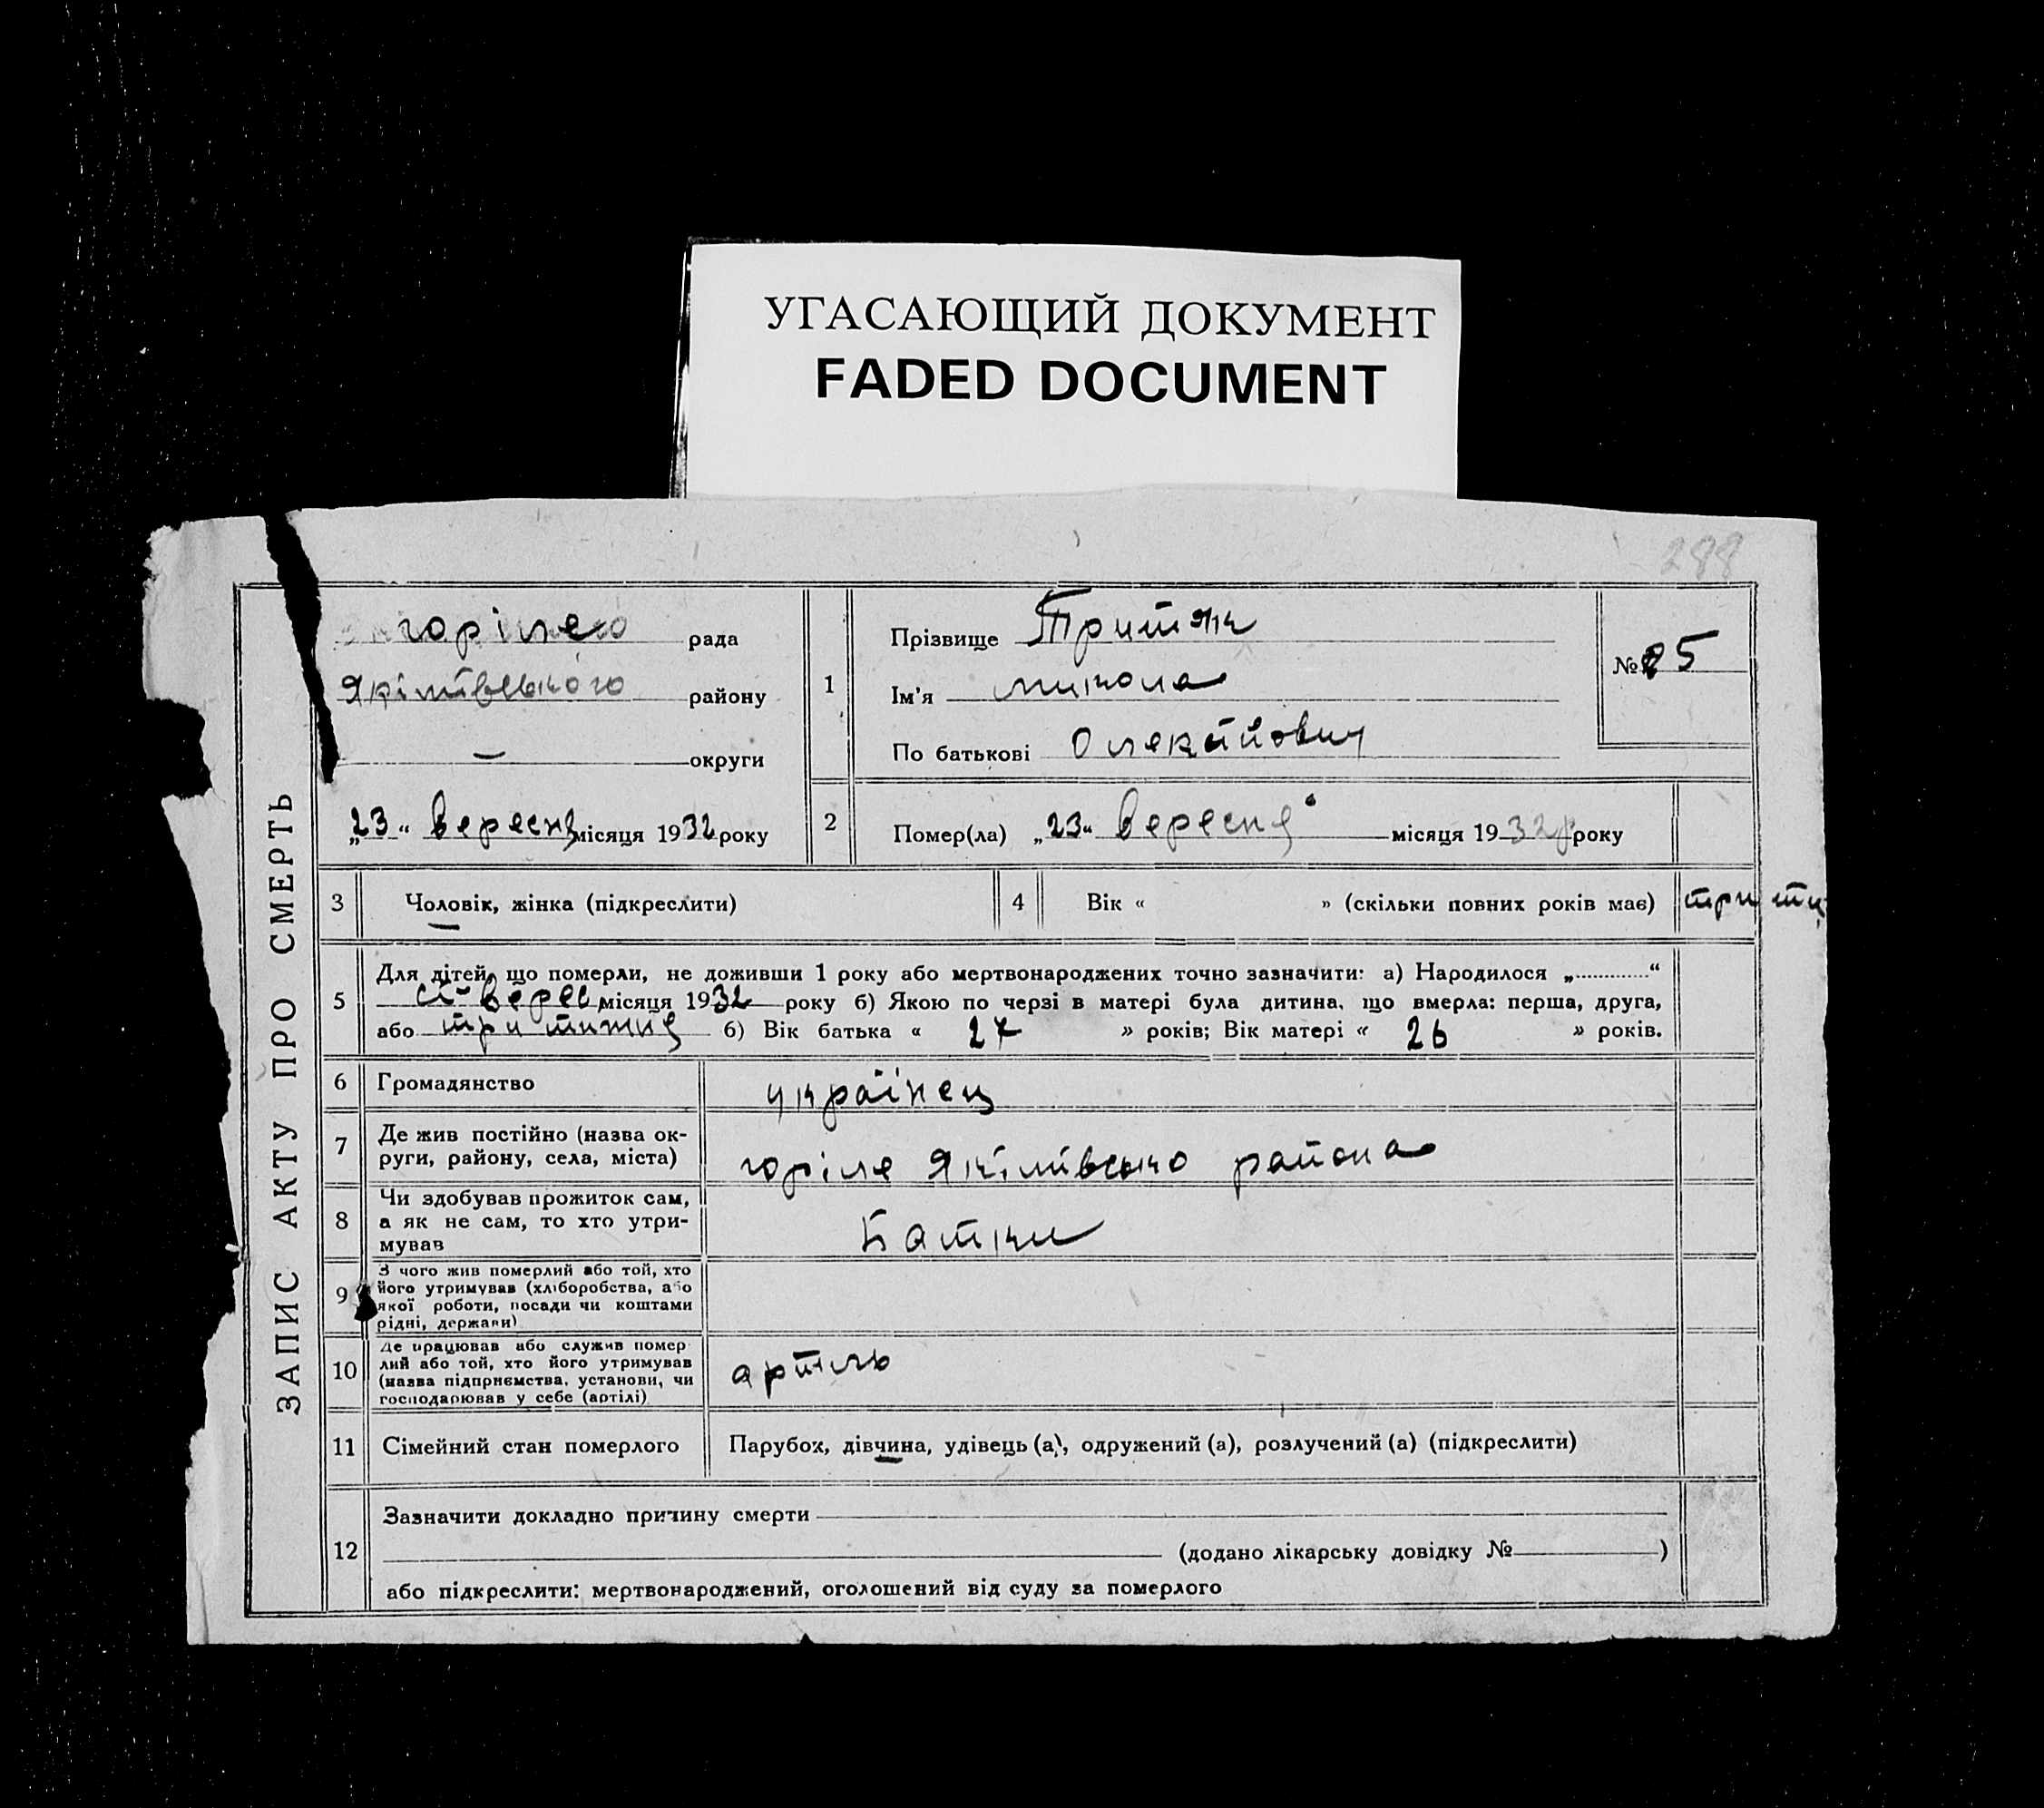 УГАСАЮЩИЙ ДОКУМЕНТ
FADED DOCUMENT
288
ЗАПИС АКТУ ПРО СМЕРТЬ
горіле рада
Якімівського району
— округи
„23“ вересня місяця 1932 року
1
Прізвище Притяк
Ім'я микола
По батькові
№ 85
2
Помер(ла) „23“ вересня місяця 1932 року
3
Чоловік, жінка (підкреслити)
4
Вік « » (скільки повних років має)
5
Для дітей, що померли, не доживши 1 року або мертвонароджених точно зазначити: а) Народилося „............“
місяця 1932 року б) Якою по черзі в матері була дитина, що вмерла: перша, друга,
або три тижня б) Вік батька « 27 » років; Вік матері « 26 » років.
6
Громадянство
українец
7
Де жив постійно (назва ок-
руги, району, села, міста)
горіле Якімівсько района
8
Чи здобував прожиток сам,
а як не сам, то хто утри-
мував
Батки
9
З чого жив померлий або той, хто
його утримував (хліборобства, або
якої роботи, посади чи коштами
рідні, держави)
10
Де працював або служив помер
лий або той, хто його утримував
(назва підприємства, установи, чи
господарював у себе (артілі)
артиль
11
Сімейний стан померлого
Парубок, дівчина, удівець (а), одружений (а), розлучений (а) (підкреслити)
12
Зазначити докладно причину смерти
(додано лікарську довідку № )
або підкреслити: мертвонароджений, оголошений від суду за померлого